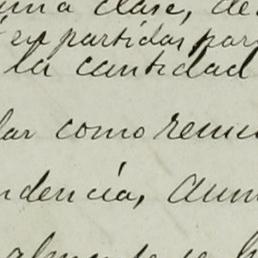 una clase, de
en partidas por
la cantidad
lar como remu
ndencia, aun
almente se